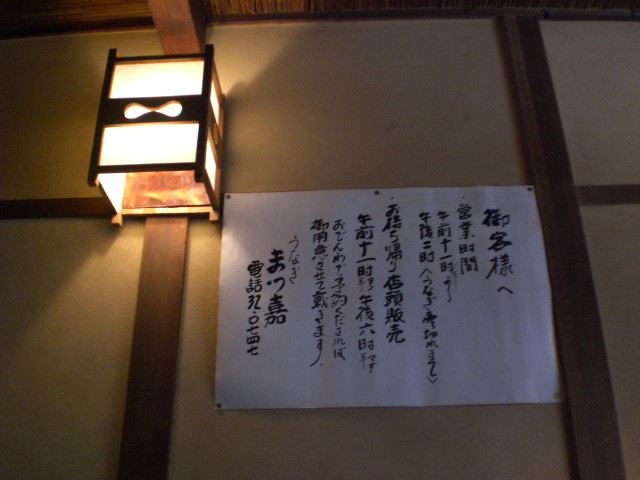 御客様へ
・営業時間
午前十一時より
午後二時(うなぎ売切れまで)
・お持ち帰り店頭販売
午前十一時半午後六時半まで
おでんわで予約くだされば
御用意させて戴きます。
うなぎ
まつ嘉
電話31・0747